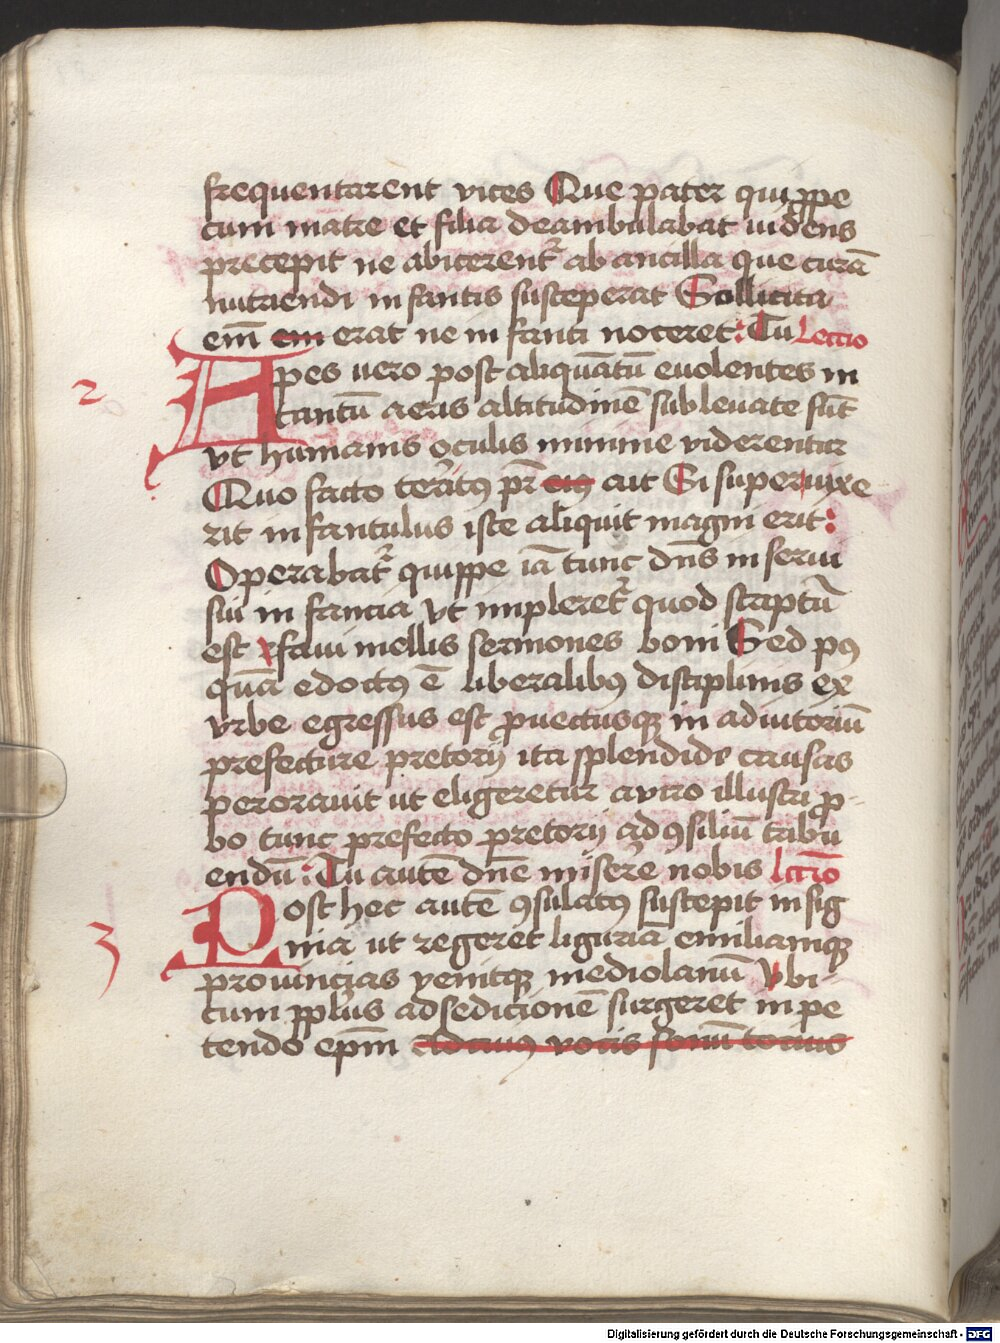 frequentarent vices Que pater quippe
cum matre et filia deambulabat uidens
precepit ne abicerent᷑ ab ancilla que curā
nutriendi infantis susceperat Sollicita
em̄ em erat ne infanti noceret: Tu Leccio
2 Apes uero post aliquātū euolentes in
tantū aeris altitudinē subleuate sūt
vt humanis oculis minime viderentur
Quo facto territꝯ pr̄ eiꝯ ait Si superuixe
rit infantulus iste aliquit magni erit:
Operabat᷑ quippe iā tunc dn̄s in serui
sui infancia vt impleret᷑ quod scriptū
est faui mellis sermones boni Sed pꝯ
quā edoctꝯ ē liberalibꝯ disciplinis ex
vrbe egressus est ꝓuectusqꝫ in adiutoriū
prefecture pretorij ita splendide causas
perorauit ut eligeretur a viro illustri ꝓ-
bo tunc prefecto pretorij ad ꝯsiliū tribu
endū: Tu autē dn̄e miserere nobis lccio
3 Post hec autē ꝯsulatꝯ suscepit insig
nia ut regeret liguriā emiliamqꝫ
prouincias venitqꝫ mediolanū Vbi
cum pplūs ad sedicionē surgeret in pe
tendo ep̄m ad cuiꝯ vocis sonū tocius
Digitalisierung gefördert durch die Deutsche Forschungsgemeinschaft - DFG